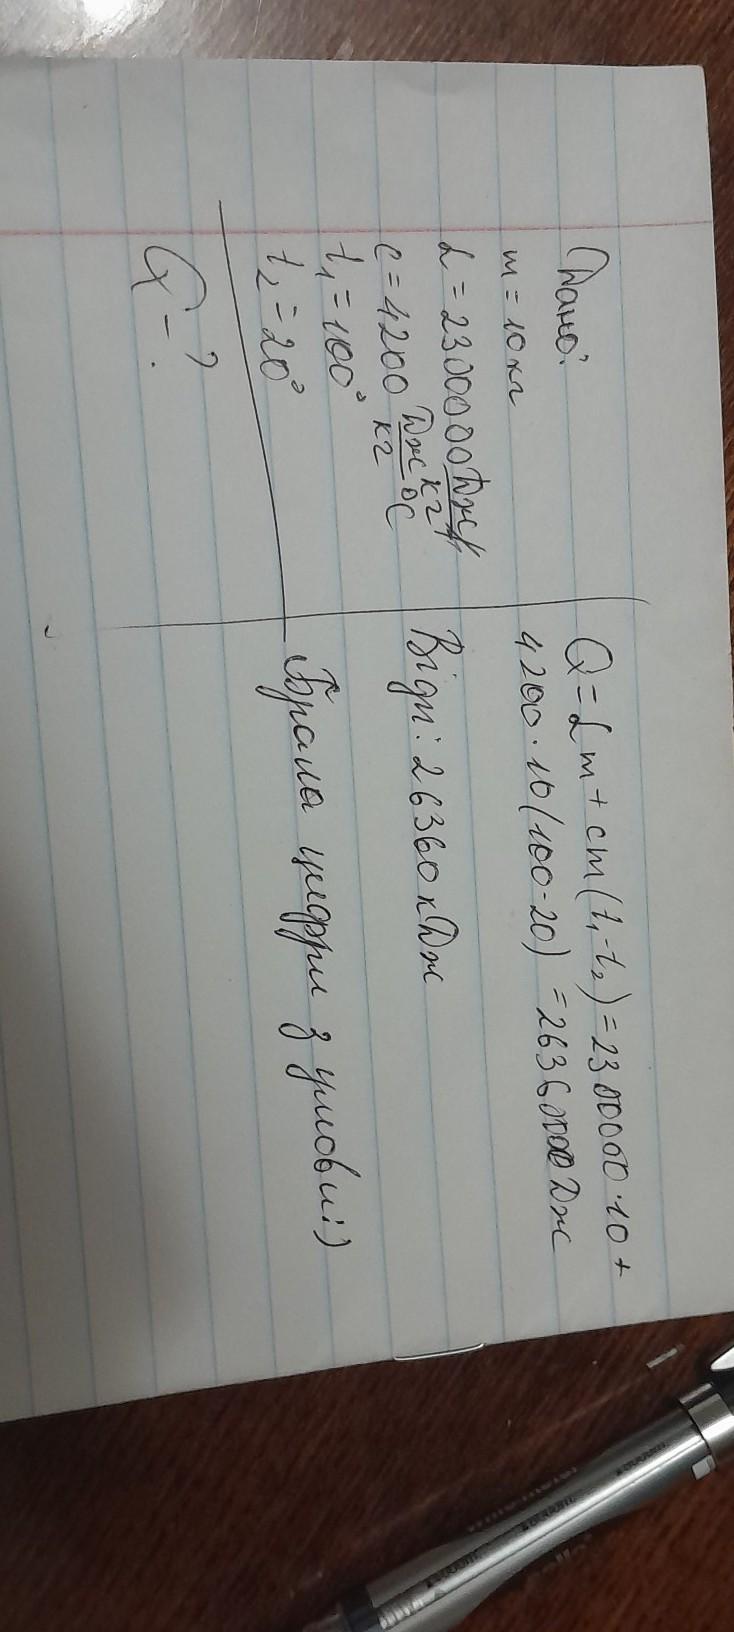 Дано:
m = 10 кг
L = 2300000 Дж/кг
c = 4200 Дж/кг °C
t₁ = 100°
t₂ = 20°
Q - ?
Q = Lm + cm(t₁-t₂) = 2300000·10 +
4200·10(100-20) = 26360000 Дж
Відп: 26360 кДж
Брала цифри з умови:)